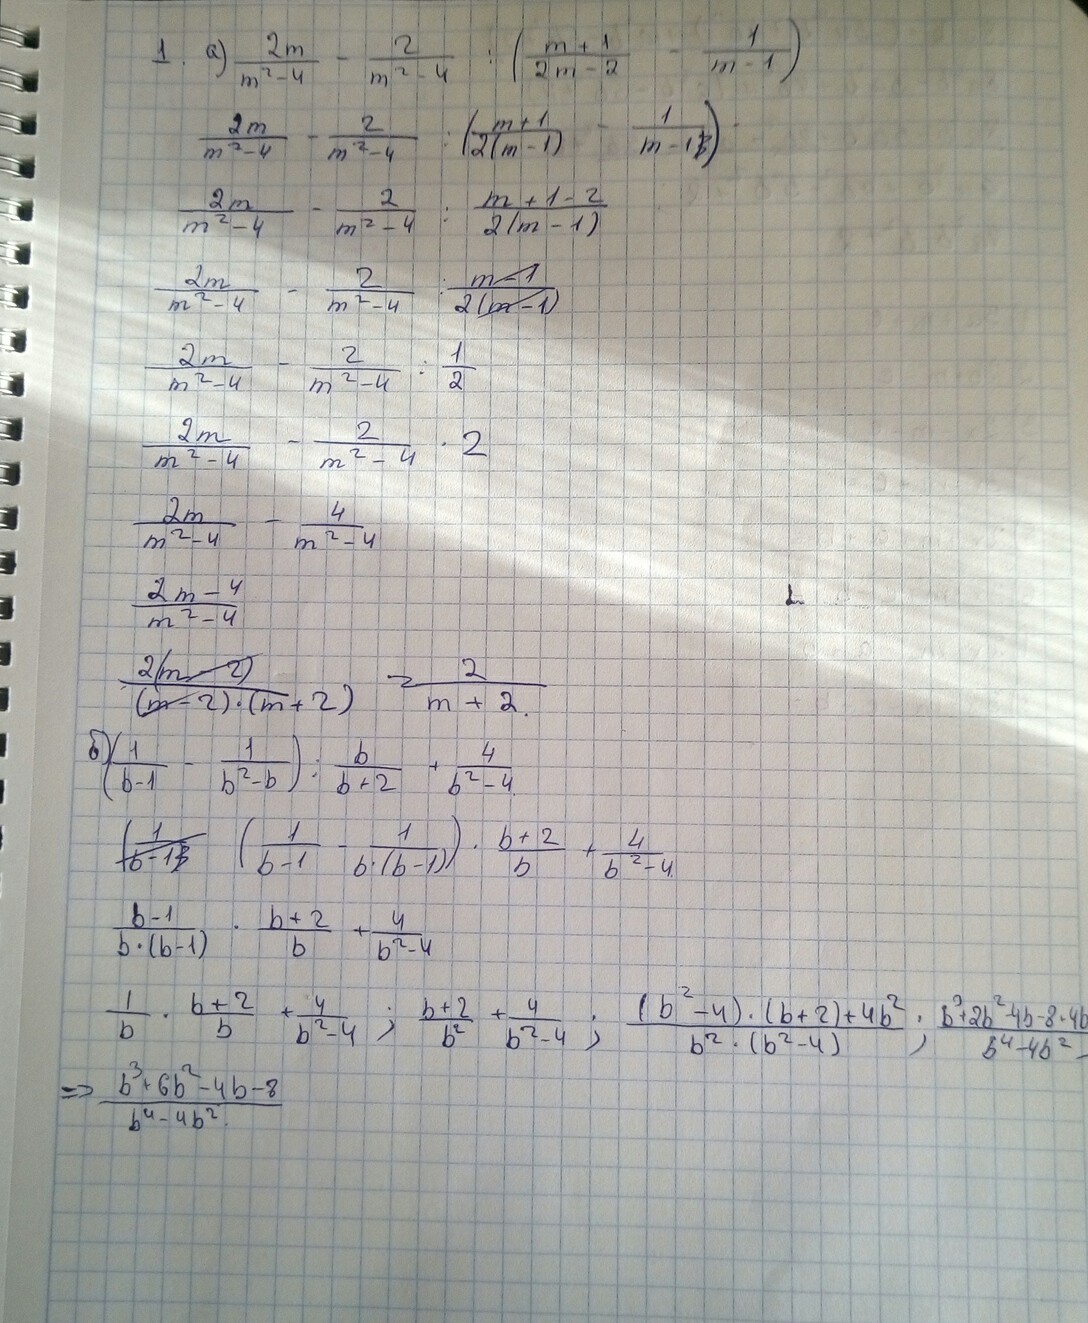 1. а) 2m/(m²-4) - 2/(m²-4) : ((m+1)/(2m-2) - 1/(m-1))
2m/(m²-4) - 2/(m²-4) : ((m+1)/(2(m-1)) - 1/(m-1))
2m/(m²-4) - 2/(m²-4) : (m+1-2)/(2(m-1))
2m/(m²-4) - 2/(m²-4) : (m-1)/(2(m-1))
2m/(m²-4) - 2/(m²-4) : 1/2
2m/(m²-4) - 2/(m²-4) · 2
2m/(m²-4) - 4/(m²-4)
(2m-4)/(m²-4)
2(m-2)/((m-2)·(m+2)) = 2/(m+2).
б) (1/(b-1) - 1/(b²-b)) : b/(b+2) + 4/(b²-4)
(1/(b-1) (1/(b-1) - 1/(b·(b-1))) · (b+2)/b + 4/(b²-4)
(b-1)/(b·(b-1)) · (b+2)/b + 4/(b²-4)
1/b · (b+2)/b + 4/(b²-4) ; (b+2)/b² + 4/(b²-4) ; ((b²-4)·(b+2)+4b²)/(b²·(b²-4)) ; (b³+2b²-4b-8+4b/(b⁴-4b²) =
=> (b³+6b²-4b-8)/(b⁴-4b²).